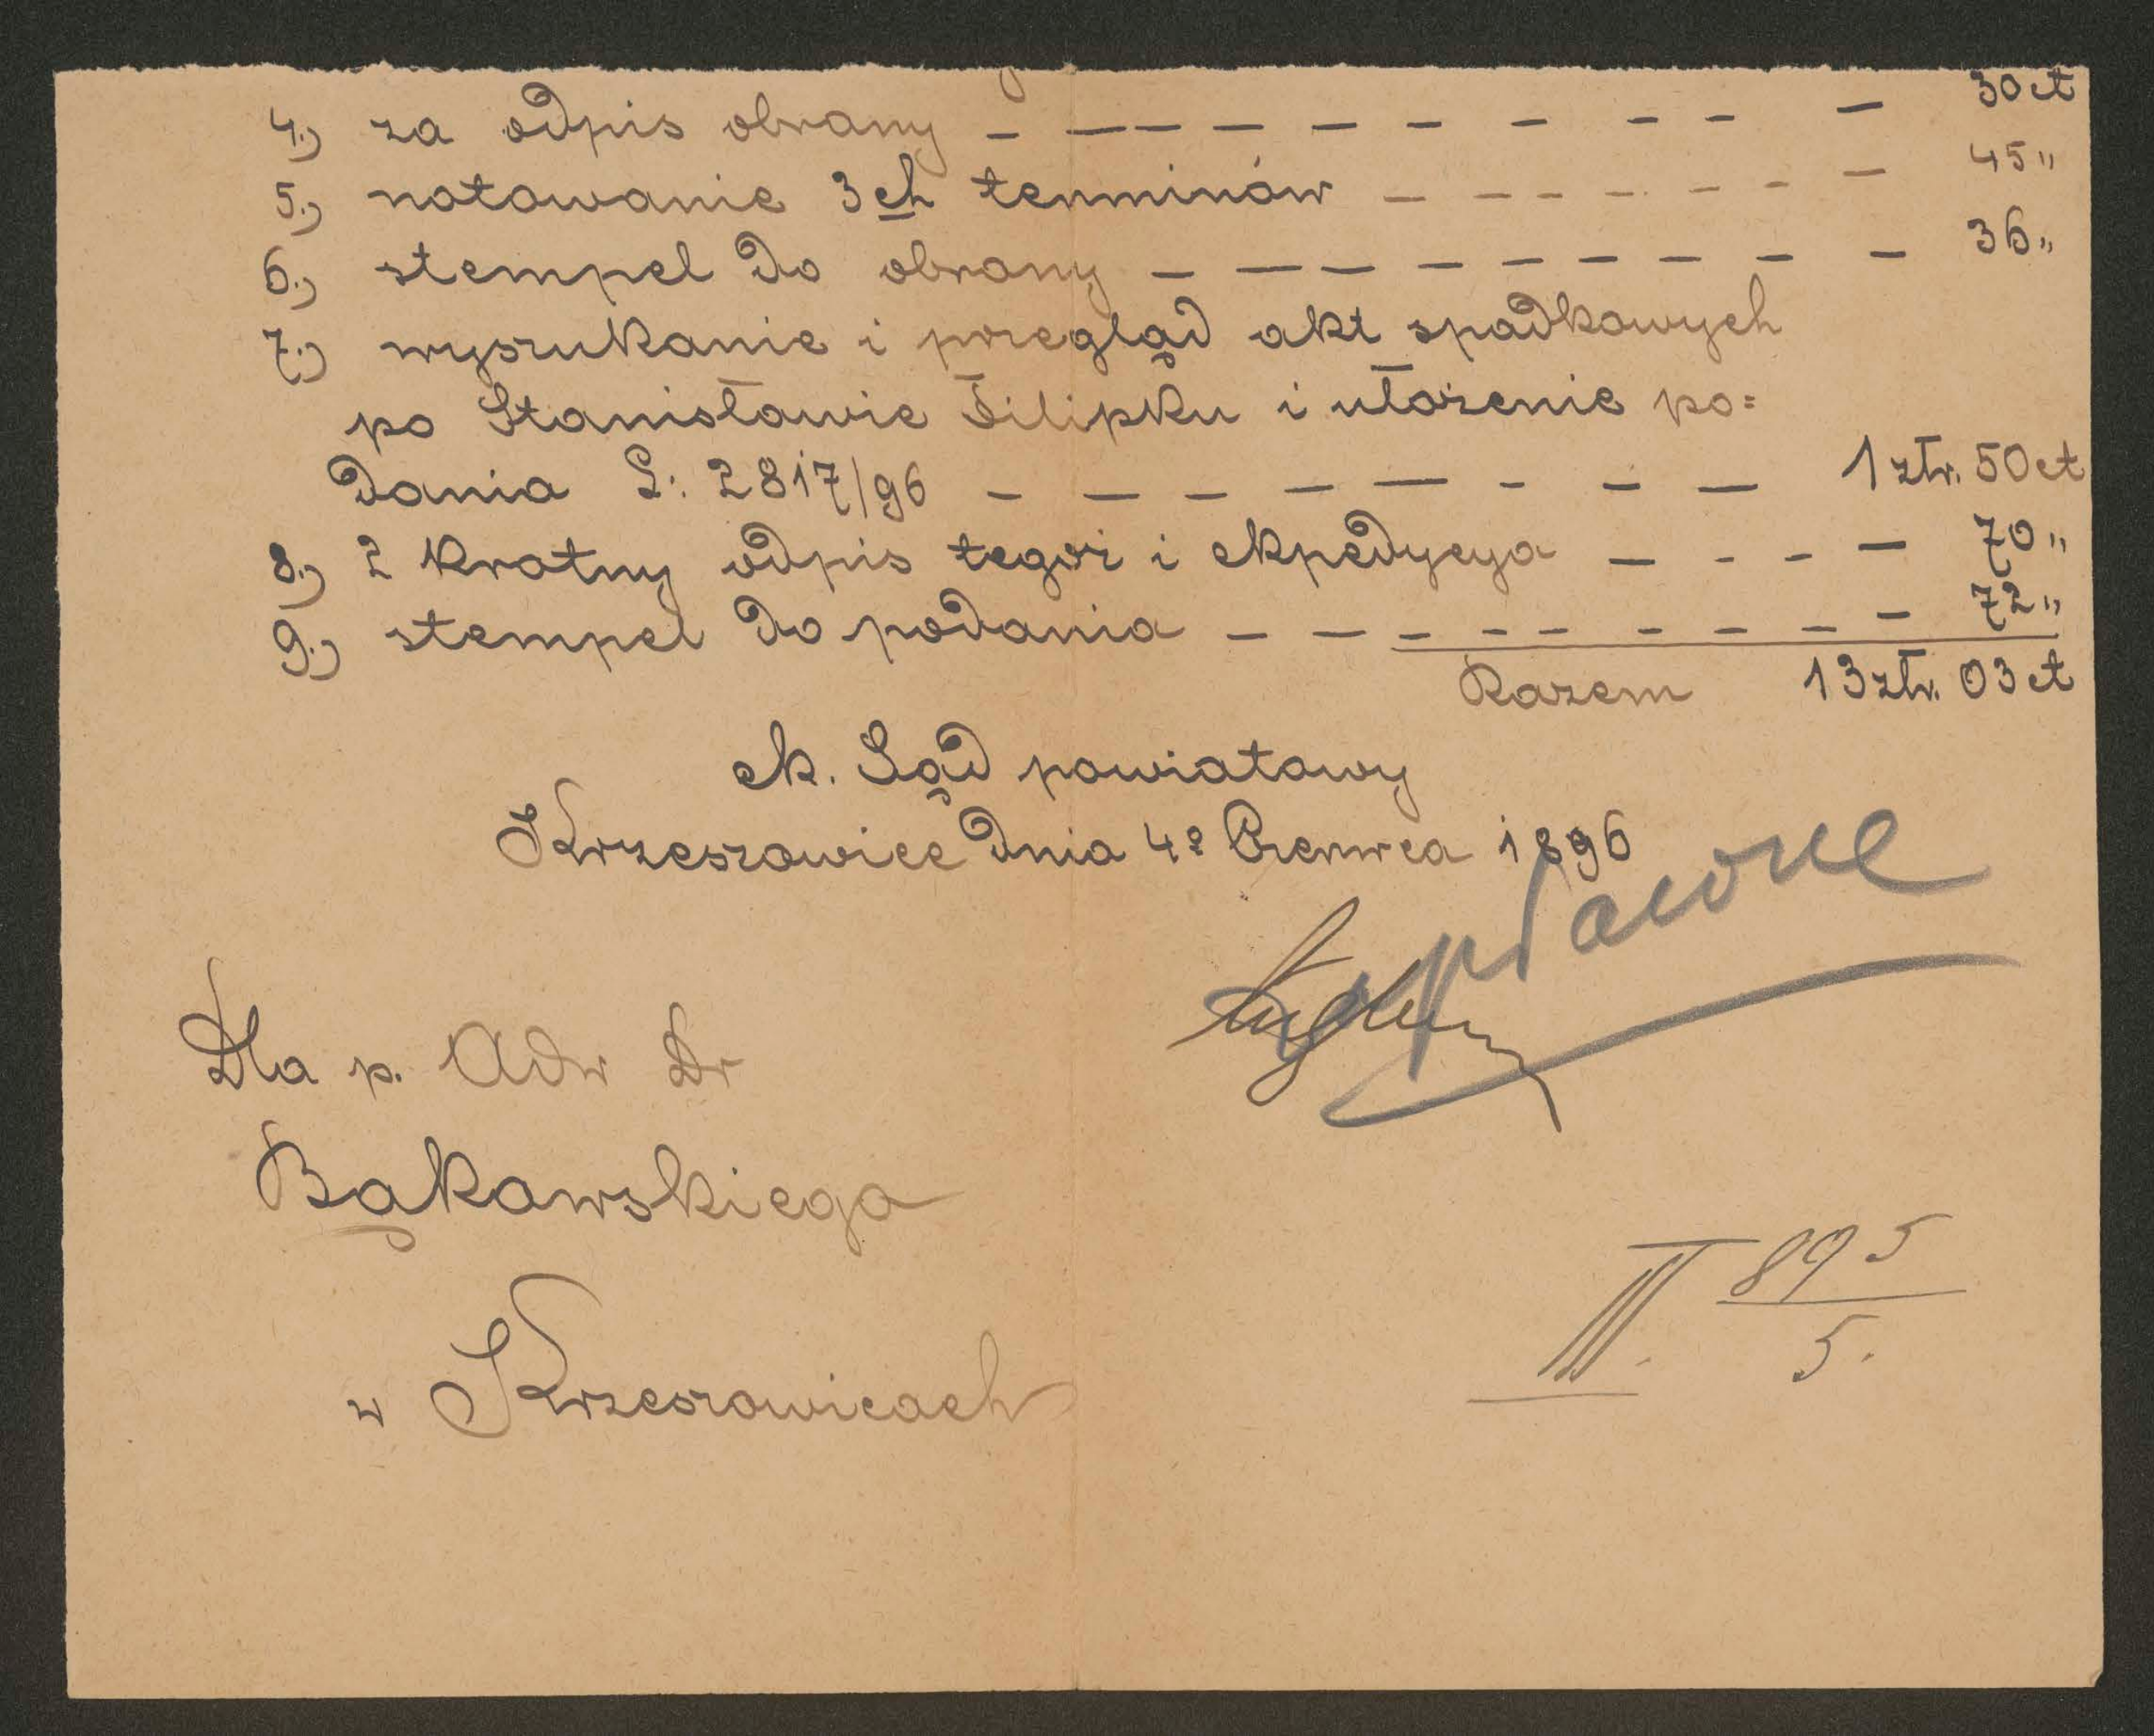 4.) za odpis obrany – – – – – – – – – – 30 ct
5.) notowanie 3ch terminów – – – – – – – 45 "
6.) stempel do obrany – – – – – – – – – – 36 "
7.) wyszukanie i przegląd akt spadkowych
po Stanisławie Filipku i ułożenie po=
dania L: 2817/96 – – – – – – – – 1 złr. 50 ct
8.) 2 kratny odpis tegoż i ekpedycya – – – – 70 "
9.) stempel do podania – – – – – – – – – – 72 "
Razem 13 złr. 03 ct
ck. Sąd powiatowy
Krzeszowice dnia 4º Czerwca 1896
wypłacone
Dla p. Adw Dr
Bąkowskiego
w Krzeszowicach
III. 895
5.